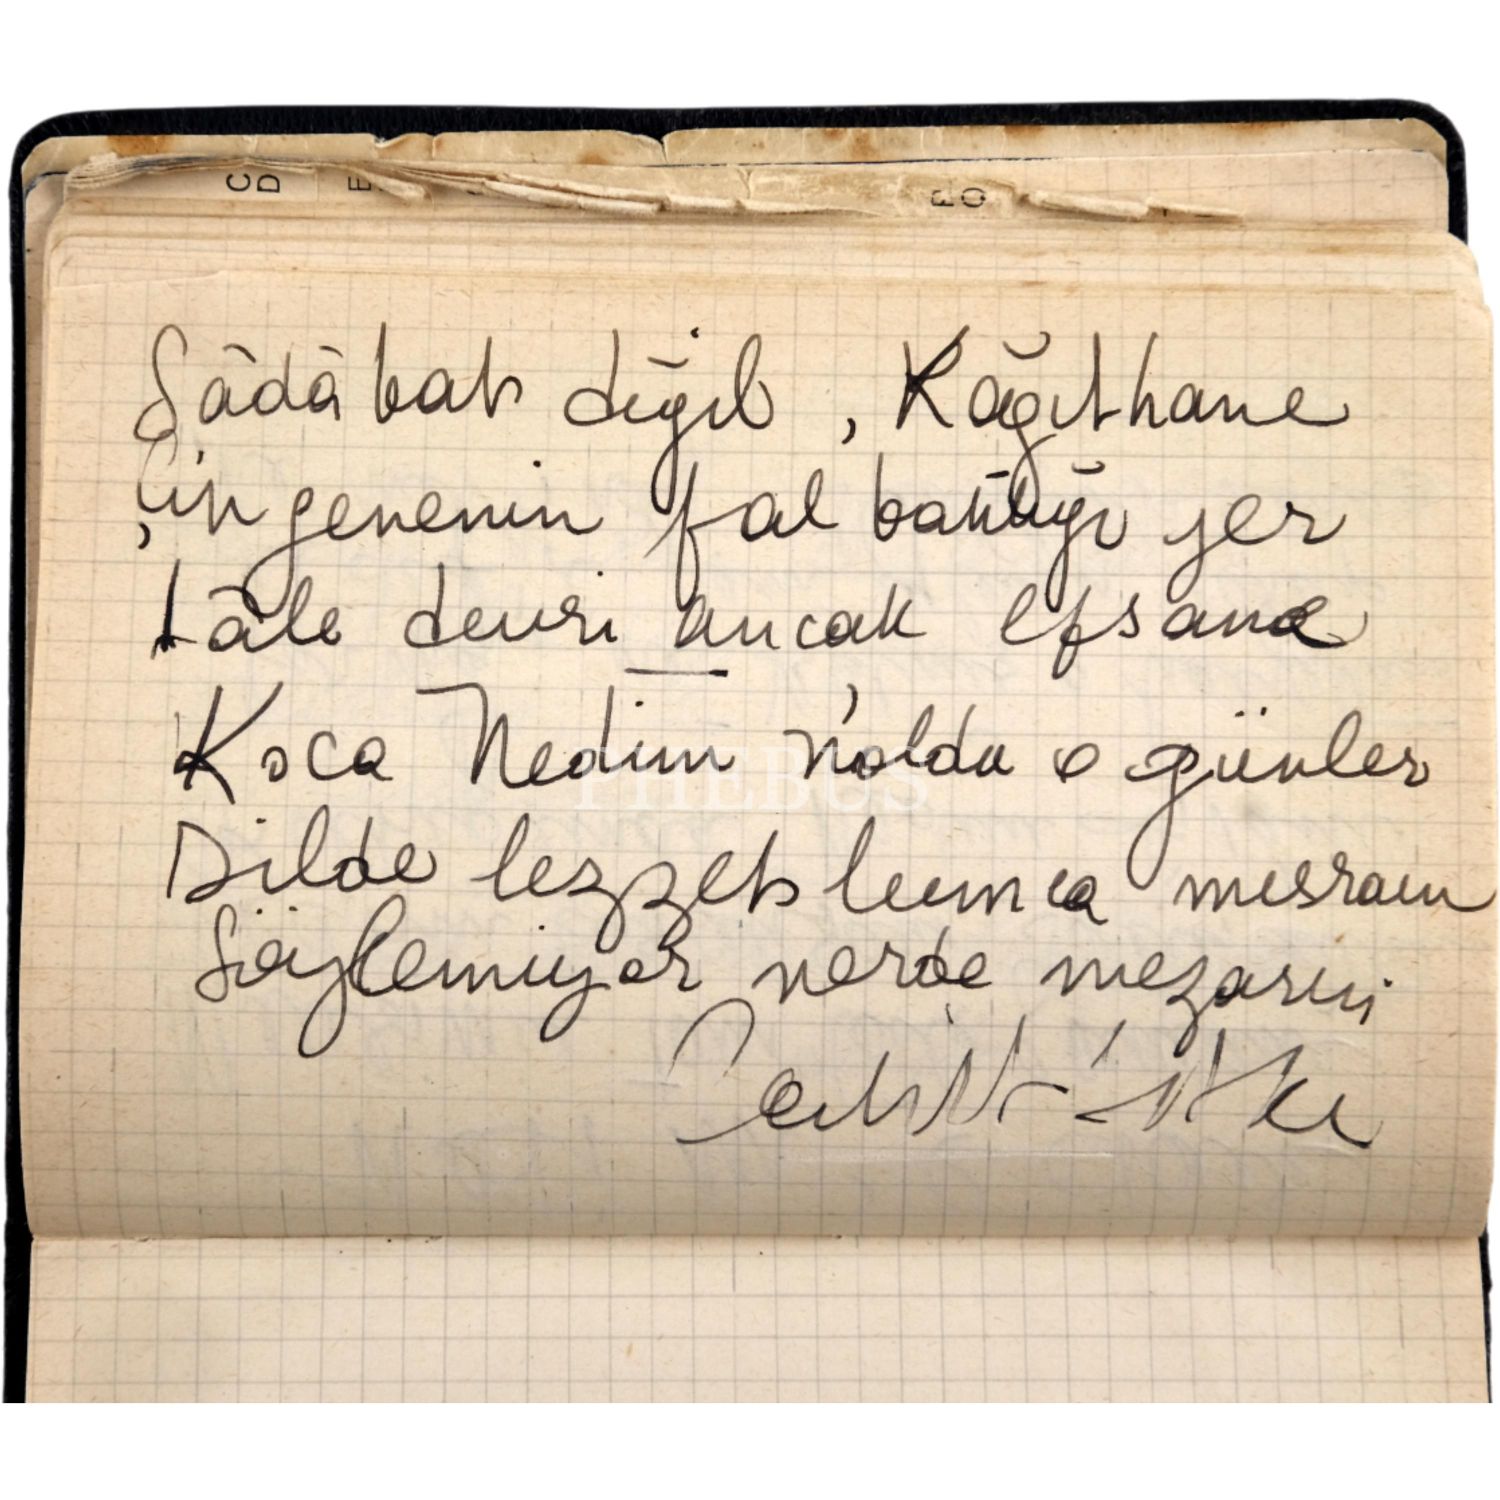 C
D
E
F
O
Sâdâbat değil, Kâğıthane
Çingenenin fal baktığı yer
Lâle devri ancak efsane
Koca Nedim n'oldu o günler
THEBUS
Dilde lezzet bunca mısraın
Söylemiyor nerde mezarın